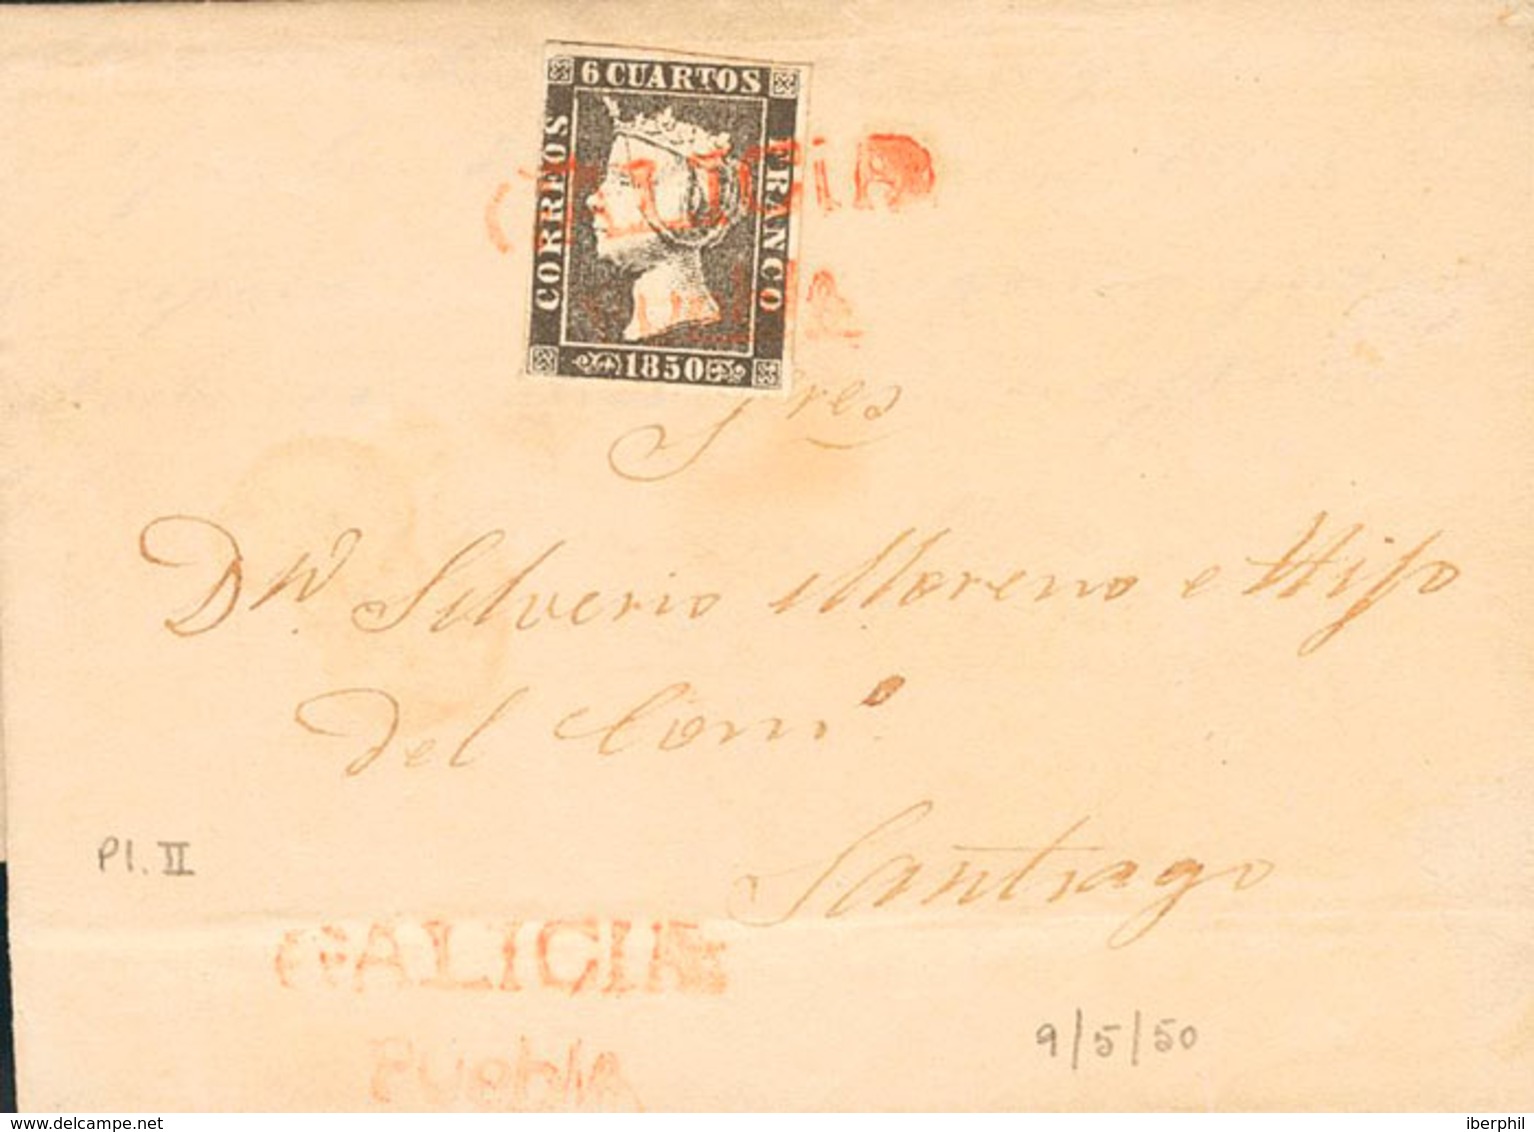 6 CUARTOS
CORREOS
FRANCO
1850
GALICIA
Sres
Dn. Silverio Moreno e Hijo
del Com.o
Santiago
Pl. II
GALICIA
Puebla
9/5/50
delcampe.net
iberphil